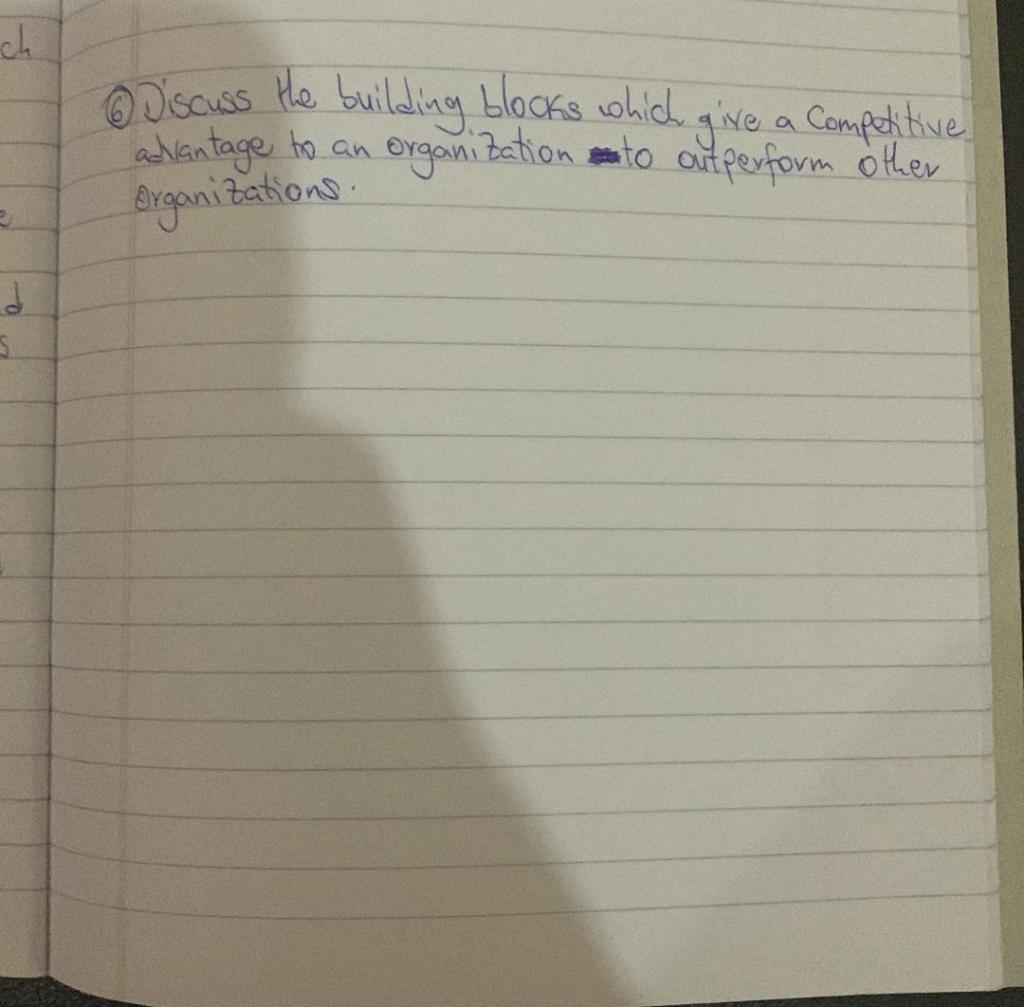 ch
⑥ Discuss the building blocks which give a Competitive
advantage to an organization to outperform other
organizations.
e
d
s